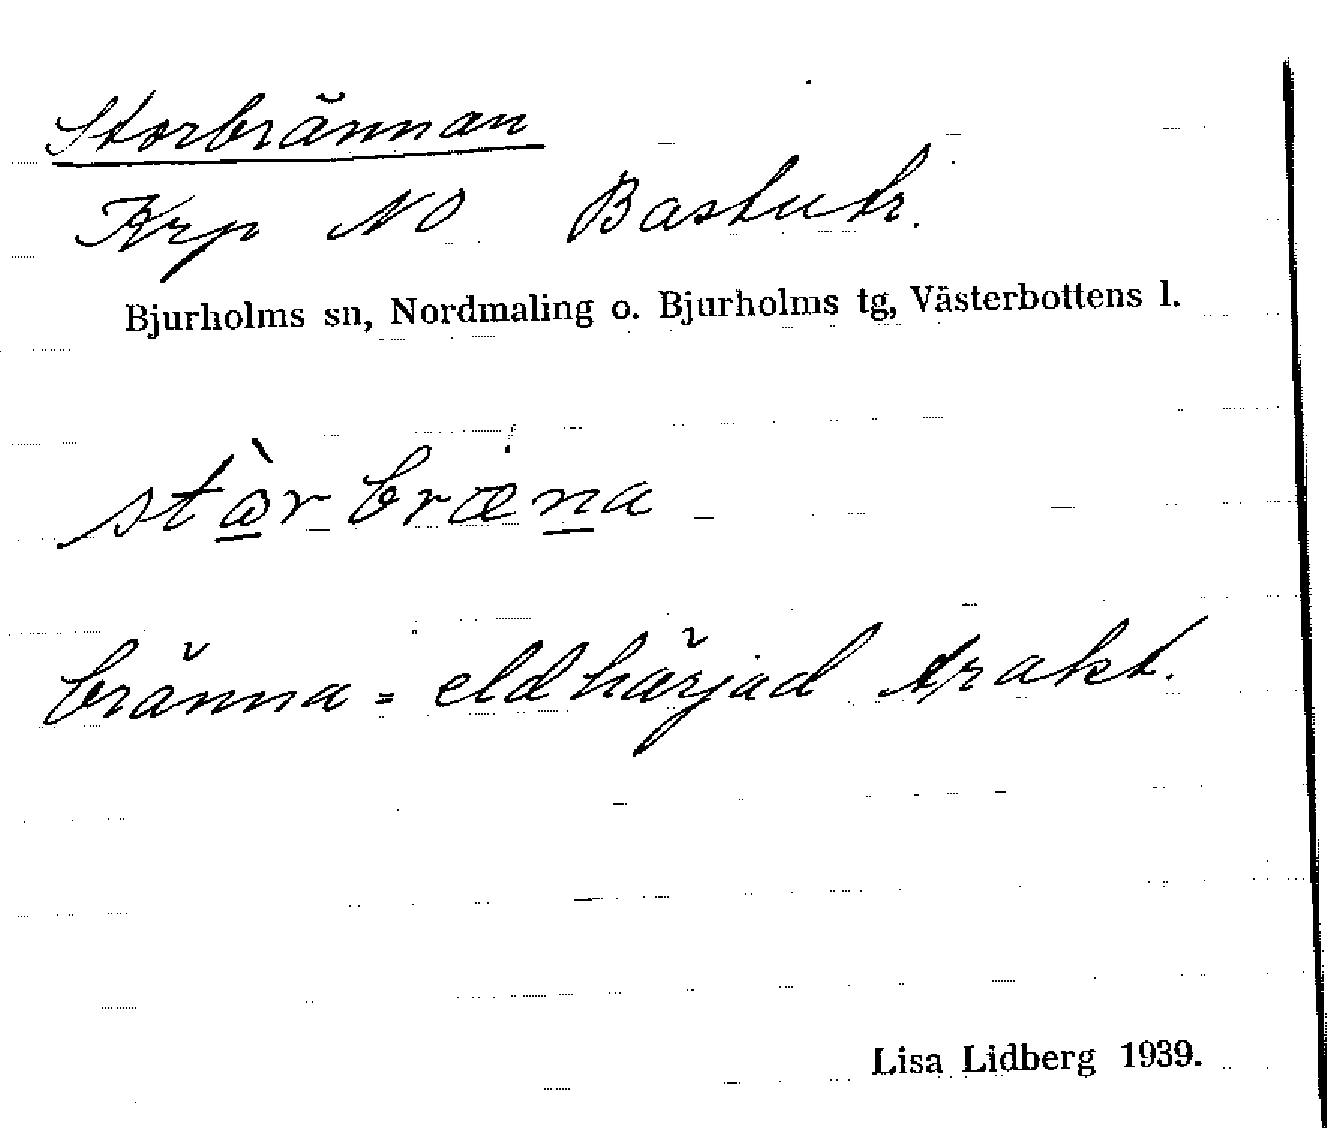 Storbrännan
Krp NO Bastutr.
Bjurholms sn, Nordmaling o. Bjurholms tg, Västerbottens l.
stὰrbræna
bränna = eldhärjad trakt.
Lisa Lidberg 1939.